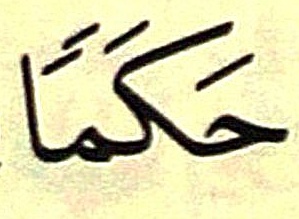 حَكَمًا